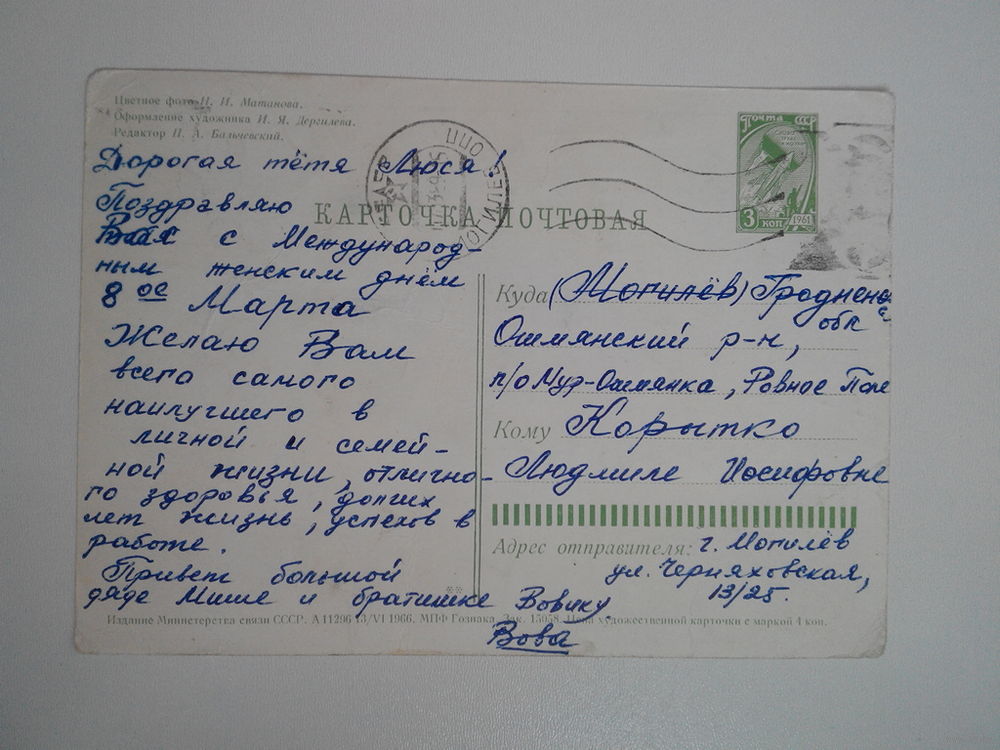 Цветное фото Н. И. Матанова.
Оформление художника И. Я. Дергилева.
Редактор П. А. Бальчевский.
Дорогая тётя Люся!
Поздравляю
Вас с Международ-
ным женским днём
8ое Марта
Желаю Вам
всего самого
наилучшего в
личной и семей-
ной жизни, отлично-
го здоровья, долгих
лет жизнь, успехов в
работе.
Привет большой
дяде Мише и братишке Вовику
Вова
КАРТОЧКА ПОЧТОВАЯ
ПОЧТА СССР
3 коп
1961
Куда (Могилёв) Гродненс
обл
Ошмянский р-н,
п/о Мур-Ошмянка, Ровное Поле
Кому Корытко
Людмиле Иосифовне
Адрес отправителя: г. Могилёв
ул. Черняховская,
13/25.
Издание Министерства связи СССР. А 11296 13/VI 1966. МПФ Гознака. Зак. 15058. Цена художественной карточки с маркой 4 коп.